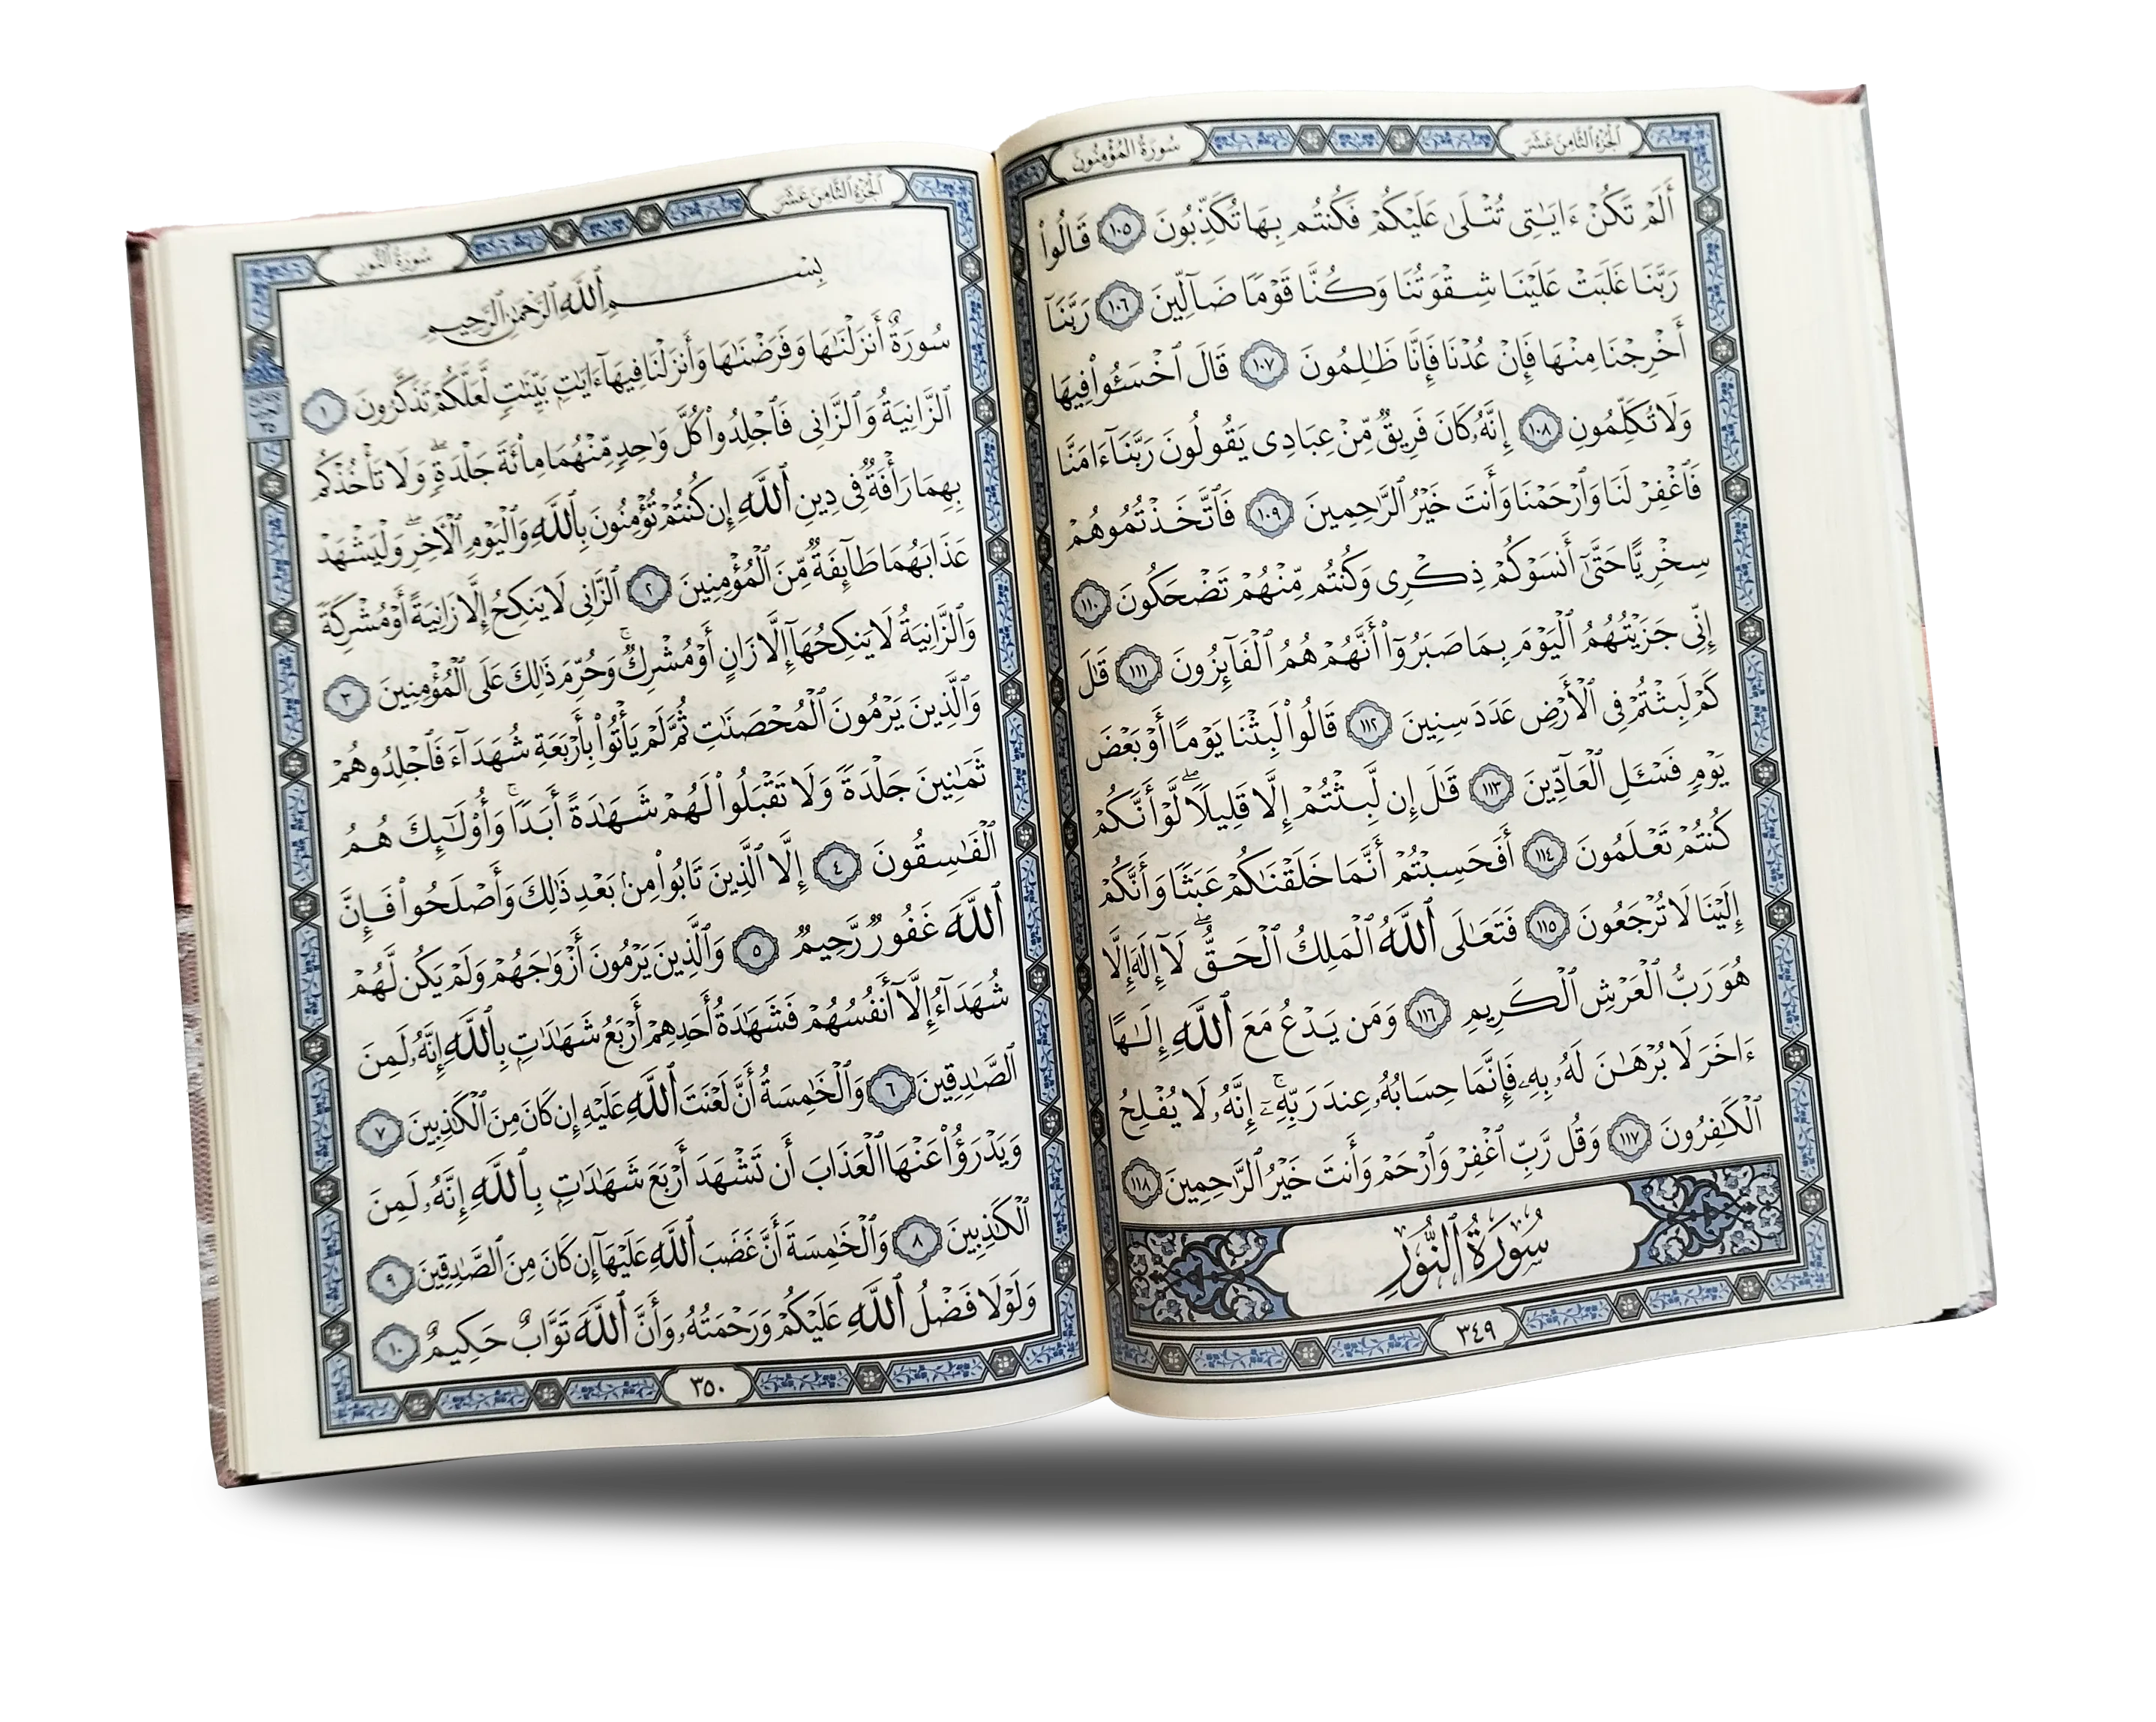 سُورَةُ المُؤْمِنُونَ
الجُزْءُ الثَّامِنَ عَشَرَ
أَلَمْ تَكُنْ ءَايَٰتِى تُتْلَىٰ عَلَيْكُمْ فَكُنتُم بِهَا تُكَذِّبُونَ ١٠٥ قَالُوا۟
رَبَّنَا غَلَبَتْ عَلَيْنَا شِقْوَتُنَا وَكُنَّا قَوْمًا ضَآلِّينَ ١٠٦ رَبَّنَآ
أَخْرِجْنَا مِنْهَا فَإِنْ عُدْنَا فَإِنَّا ظَٰلِمُونَ ١٠٧ قَالَ ٱخْسَـُٔوا۟ فِيهَا
وَلَا تُكَلِّمُونِ ١٠٨ إِنَّهُۥ كَانَ فَرِيقٌ مِّنْ عِبَادِى يَقُولُونَ رَبَّنَآ ءَامَنَّا
فَٱغْفِرْ لَنَا وَٱرْحَمْنَا وَأَنتَ خَيْرُ ٱلرَّٰحِمِينَ ١٠٩ فَٱتَّخَذْتُمُوهُمْ
سِخْرِيًّا حَتَّىٰٓ أَنسَوْكُمْ ذِكْرِى وَكُنتُم مِّنْهُمْ تَضْحَكُونَ ١١٠
إِنِّى جَزَيْتُهُمُ ٱلْيَوْمَ بِمَا صَبَرُوٓا۟ أَنَّهُمْ هُمُ ٱلْفَآئِزُونَ ١١١ قَٰلَ
كَمْ لَبِثْتُمْ فِى ٱلْأَرْضِ عَدَدَ سِنِينَ ١١٢ قَالُوا۟ لَبِثْنَا يَوْمًا أَوْ بَعْضَ
يَوْمٍ فَسْـَٔلِ ٱلْعَآدِّينَ ١١٣ قَٰلَ إِن لَّبِثْتُمْ إِلَّا قَلِيلًا ۖ لَّوْ أَنَّكُمْ
كُنتُمْ تَعْلَمُونَ ١١٤ أَفَحَسِبْتُمْ أَنَّمَا خَلَقْنَٰكُمْ عَبَثًا وَأَنَّكُمْ
إِلَيْنَا لَا تُرْجَعُونَ ١١٥ فَتَعَٰلَى ٱللَّهُ ٱلْمَلِكُ ٱلْحَقُّ ۖ لَآ إِلَٰهَ إِلَّا
هُوَ رَبُّ ٱلْعَرْشِ ٱلْكَرِيمِ ١١٦ وَمَن يَدْعُ مَعَ ٱللَّهِ إِلَٰهًا
ءَاخَرَ لَا بُرْهَٰنَ لَهُۥ بِهِۦ فَإِنَّمَا حِسَابُهُۥ عِندَ رَبِّهِۦٓ ۚ إِنَّهُۥ لَا يُفْلِحُ
ٱلْكَٰفِرُونَ ١١٧ وَقُل رَّبِّ ٱغْفِرْ وَٱرْحَمْ وَأَنتَ خَيْرُ ٱلرَّٰحِمِينَ ١١٨
سُورَةُ ٱلنُّورِ
٣٤٩
سُورَةُ النُّورِ
الجُزْءُ الثَّامِنَ عَشَرَ
بِسْمِ ٱللَّهِ ٱلرَّحْمَٰنِ ٱلرَّحِيمِ
سُورَةٌ أَنزَلْنَٰهَا وَفَرَضْنَٰهَا وَأَنزَلْنَا فِيهَآ ءَايَٰتٍۭ بَيِّنَٰتٍ لَّعَلَّكُمْ تَذَكَّرُونَ ١
ٱلزَّانِيَةُ وَٱلزَّانِى فَٱجْلِدُوا۟ كُلَّ وَٰحِدٍ مِّنْهُمَا مِا۟ئَةَ جَلْدَةٍ ۖ وَلَا تَأْخُذْكُم
بِهِمَا رَأْفَةٌ فِى دِينِ ٱللَّهِ إِن كُنتُمْ تُؤْمِنُونَ بِٱللَّهِ وَٱلْيَوْمِ ٱلْأٓخِرِ ۖ وَلْيَشْهَدْ
عَذَابَهُمَا طَآئِفَةٌ مِّنَ ٱلْمُؤْمِنِينَ ٢ ٱلزَّانِى لَا يَنكِحُ إِلَّا زَانِيَةً أَوْ مُشْرِكَةً
وَٱلزَّانِيَةُ لَا يَنكِحُهَآ إِلَّا زَانٍ أَوْ مُشْرِكٌ ۚ وَحُرِّمَ ذَٰلِكَ عَلَى ٱلْمُؤْمِنِينَ ٣
وَٱلَّذِينَ يَرْمُونَ ٱلْمُحْصَنَٰتِ ثُمَّ لَمْ يَأْتُوا۟ بِأَرْبَعَةِ شُهَدَآءَ فَٱجْلِدُوهُمْ
ثَمَٰنِينَ جَلْدَةً وَلَا تَقْبَلُوا۟ لَهُمْ شَهَٰدَةً أَبَدًا ۚ وَأُو۟لَٰٓئِكَ هُمُ
ٱلْفَٰسِقُونَ ٤ إِلَّا ٱلَّذِينَ تَابُوا۟ مِنۢ بَعْدِ ذَٰلِكَ وَأَصْلَحُوا۟ فَإِنَّ
ٱللَّهَ غَفُورٌ رَّحِيمٌ ٥ وَٱلَّذِينَ يَرْمُونَ أَزْوَٰجَهُمْ وَلَمْ يَكُن لَّهُمْ
شُهَدَآءُ إِلَّآ أَنفُسُهُمْ فَشَهَٰدَةُ أَحَدِهِمْ أَرْبَعُ شَهَٰدَٰتٍۭ بِٱللَّهِ إِنَّهُۥ لَمِنَ
ٱلصَّٰدِقِينَ ٦ وَٱلْخَٰمِسَةُ أَنَّ لَعْنَتَ ٱللَّهِ عَلَيْهِ إِن كَانَ مِنَ ٱلْكَٰذِبِينَ ٧
وَيَدْرَؤُا۟ عَنْهَا ٱلْعَذَابَ أَن تَشْهَدَ أَرْبَعَ شَهَٰدَٰتٍۭ بِٱللَّهِ إِنَّهُۥ لَمِنَ
ٱلْكَٰذِبِينَ ٨ وَٱلْخَٰمِسَةَ أَنَّ غَضَبَ ٱللَّهِ عَلَيْهَآ إِن كَانَ مِنَ ٱلصَّٰدِقِينَ ٩
وَلَوْلَا فَضْلُ ٱللَّهِ عَلَيْكُمْ وَرَحْمَتُهُۥ وَأَنَّ ٱللَّهَ تَوَّابٌ حَكِيمٌ ١٠
٣٥٠